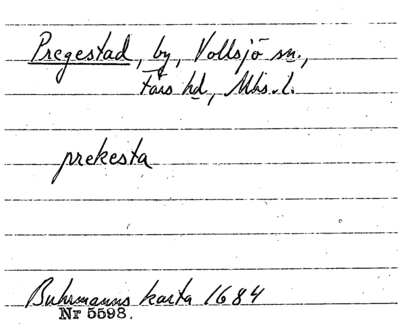 Pregestad, by, Vollsjö sn.,
Färs hd, Mhs. l.
prekesta
Buhrmanns karta 1684
Nr 5598.